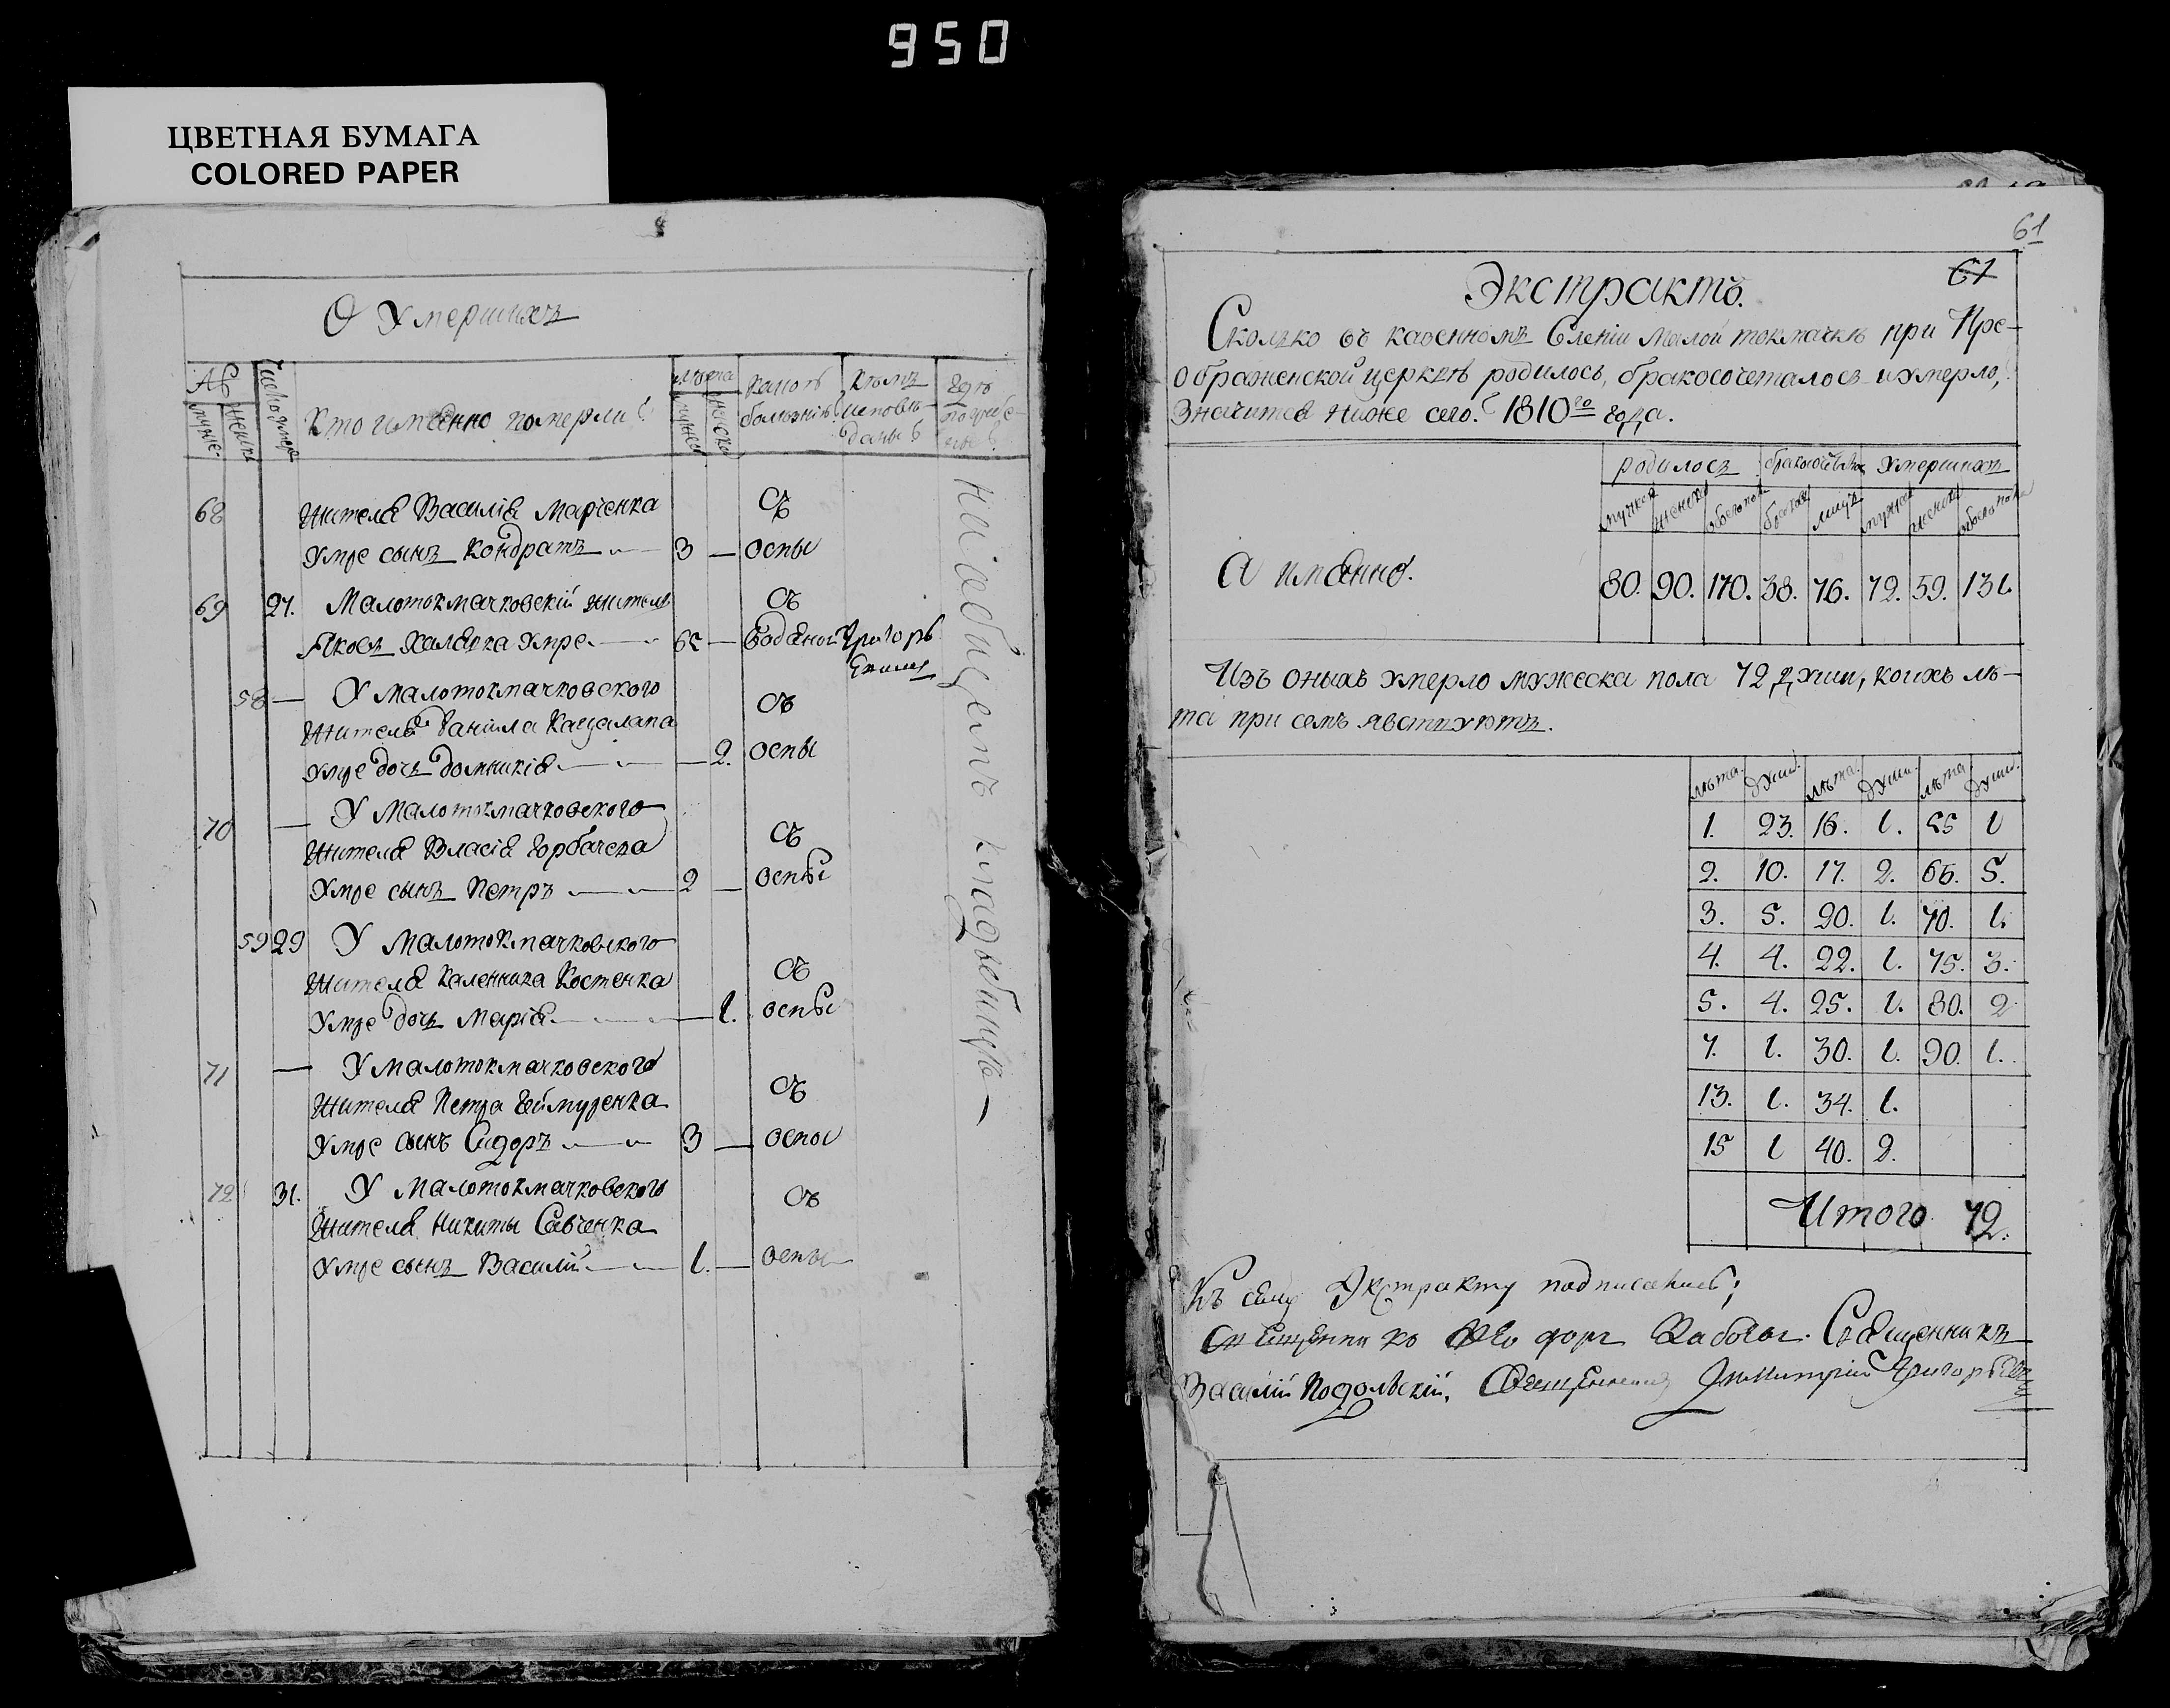 950
ЦВЕТНАЯ БУМАГА
COLORED PAPER
О Умершихъ
Кто именно померли?
68 Жителя Василія Марченка Съ
Умре сынъ Кондратъ 3 — оспы
69 27. Малотокмачковскій житель Съ
Яковъ Халявка Умре 65 —
58 — У Малотокмачковского
Жителя Даніила Кацалапа Съ
Умре дочь Домникія — 2. оспы
70 — У Малотокмачковского
Жителя Власія Горбачева Съ
Умре сынъ Петръ 2 — оспы
59 29 У Малотокмачковского
Жителя Каленника Костенка Съ
Умре дочь Марія — 1. оспы
71 — У Малотокмачковского
Жителя Петра Съ
Умре сынъ Сидоръ 3 — оспы
72 31. У Малотокмачковского Съ
Жителя Никиты Савченка
Умре сынъ Василій 1. — оспы
На общемъ кладбищѣ
61
61
Экстрактъ.
Сколько въ казенномъ Селеніи Малой токмачкѣ при Пре-
ображенской церквѣ родилось, бракосочеталось и Умерло,
Значится Ниже сего. 1810го года.
родилось Умершихъ
мужеска женска обоего пола браковъ лицъ мужеска женска обоего пола
А имянно. 80. 90. 170. 38. 76. 72. 59. 131.
Изъ оныхъ умерло мужеска пола 72 души, коихъ лѣ-
та при семъ явствуютъ.
лѣта. душъ. лѣта. душъ. лѣта. душъ.
1. 23. 16. 1. 55 1
2. 10. 17. 2. 65. 5.
3. 5. 20. 1. 70. 1.
4. 4. 22. 1. 75. 3.
5. 4. 25. 1. 80. 2
7. 1. 30. 1. 90. 1.
13. 1. 34. 1.
15 1 40. 2.
Итого 72.
Къ сему Экстракту подписались;
Священникъ
Василій Подольскій, Священникъ Димитрій Григорьевъ